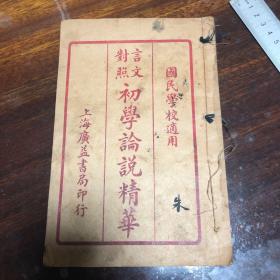 國民學校適用
言文對照
初學論說精華
上海廣益書局印行
朱